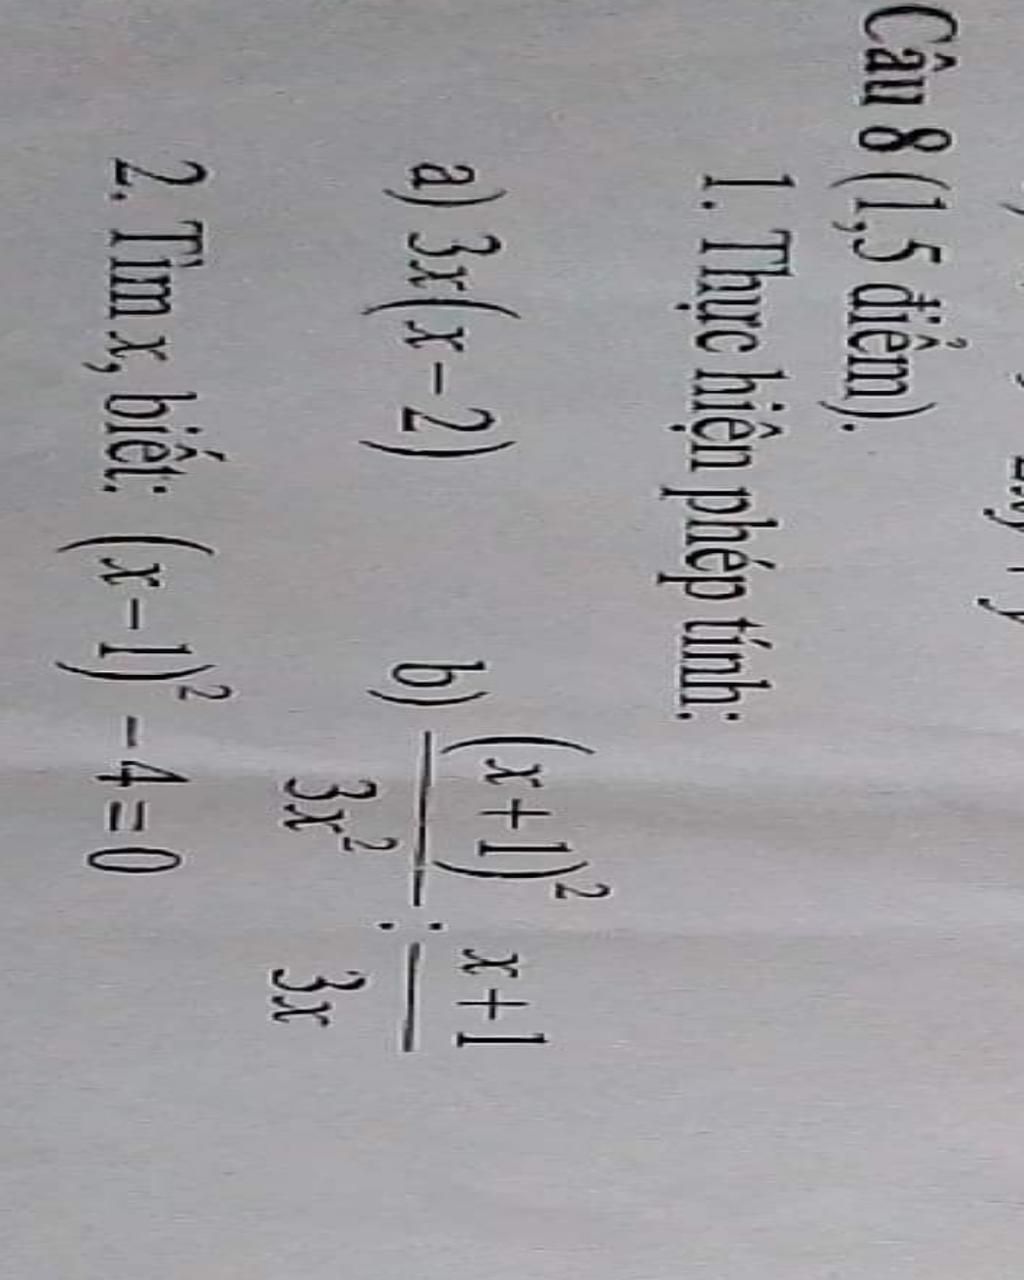 Câu 8 (1,5 điểm).
1. Thực hiện phép tính:
a) 3x(x − 2) b) (x + 1)² / 3x² : x + 1 / 3x
2. Tìm x, biết: (x − 1)² − 4 = 0